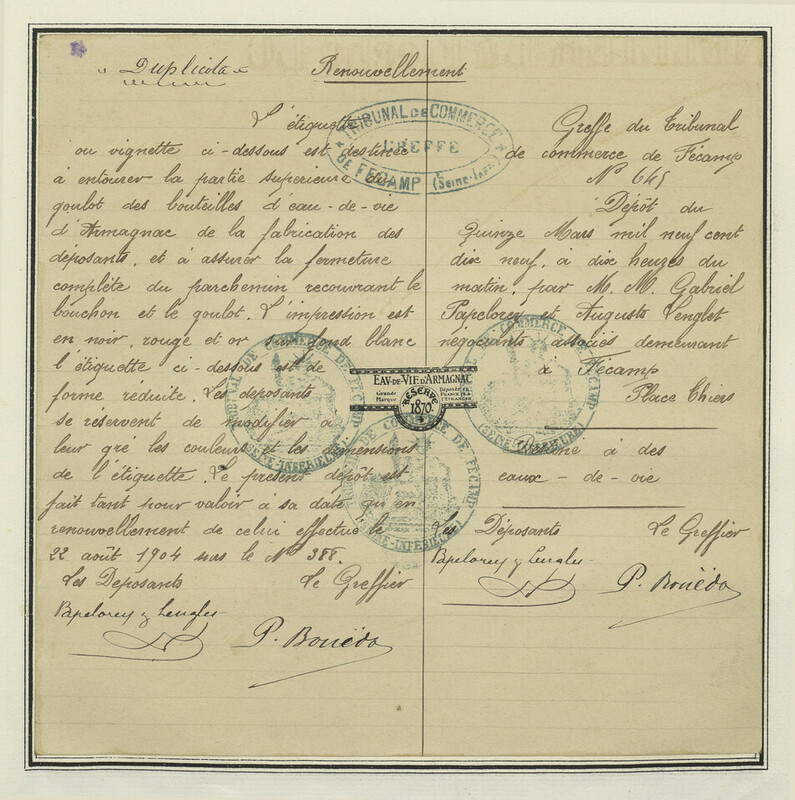 " Duplicata "
Renouvellement
L'étiquette
ou vignette ci-dessous est destinée
à entourer la partie supérieure du
goulot des bouteilles d'eau-de-vie
d'Armagnac de la fabrication des
déposants, et à assurer la fermeture
complète du parchemin recouvrant le
bouchon et le goulot. L'impression est
en noir, rouge et or sur fond blanc
l'étiquette ci-dessous est de
forme réduite. Les déposants
se réservent de modifier à
leur gré les couleurs et les dimensions
de l'étiquette. Le présent dépôt est
fait tant pour valoir à sa date qu'en
renouvellement de celui effectué le
22 août 1904 sous le N° 388.
Les Déposants Le Greffier
Papelorey & Lenglet
P. Bouëdo
TRIBUNAL DE COMMERCE
GREFFE
DE FÉCAMP (Seine-Infre)
Greffe du Tribunal
de commerce de Fécamp
N° 645
Dépôt du
Quinze Mars mil neuf cent
dix neuf, à dix heures du
matin, par M. M. Gabriel
Papelorey et Auguste Lenglet
négociants associés demeurant
à Fécamp
Place Thiers
Destiné à des
eaux-de-vie
Les Déposants Le Greffier
Papelorey & Lenglet
P. Bouëdo
EAV-DE-VIE D'ARMAGNAC
Grande Marque
RÉSERVE
1870
Déposée en
FRANCE et à
L'ÉTRANGER
TRIBUNAL DE COMMERCE DE FÉCAMP
(SEINE-INFÉRIEURE)
TRIBUNAL DE COMMERCE DE FÉCAMP
(SEINE-INFÉRIEURE)
TRIBUNAL DE COMMERCE DE FÉCAMP
(SEINE-INFÉRIEURE)